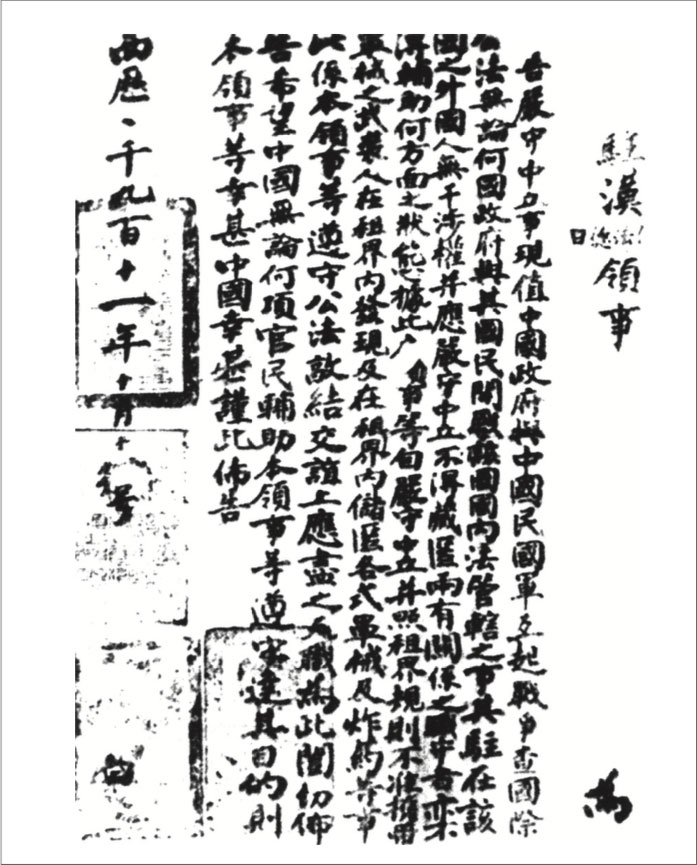 駐漢領事 為
告嚴守中立事現值中國政府與中國民國軍互起戰爭查國際
公法無論何國政府與其國民開釁該國國內法管轄之事其駐在該
國之外國人無干涉權并應嚴守中立不得藏匿兩有關係之職守者亦不
得輔助何方面之狀態據此領事等自嚴守中立并照租界規則不准攜帶
軍械之武裝人在租界內發現及在租界內儲匿各式軍械及炸藥等事
此係本領事等遵守公法敦結交誼上應盡之天職為此闓切佈
告希望中國無論何項官民輔助本領事等遵守達其目的則
本領事等幸甚中國幸甚謹此佈告
西歷一千九百十一年十月十號